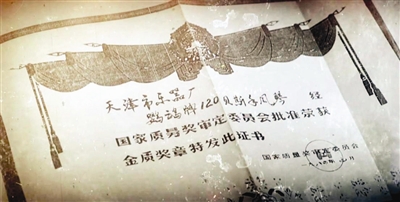 天津市乐器厂
鹦鹉牌120贝斯手风琴 经
国家质量奖审定委员会批准荣获
金质奖章特发此证书
国家质量奖审定委员会